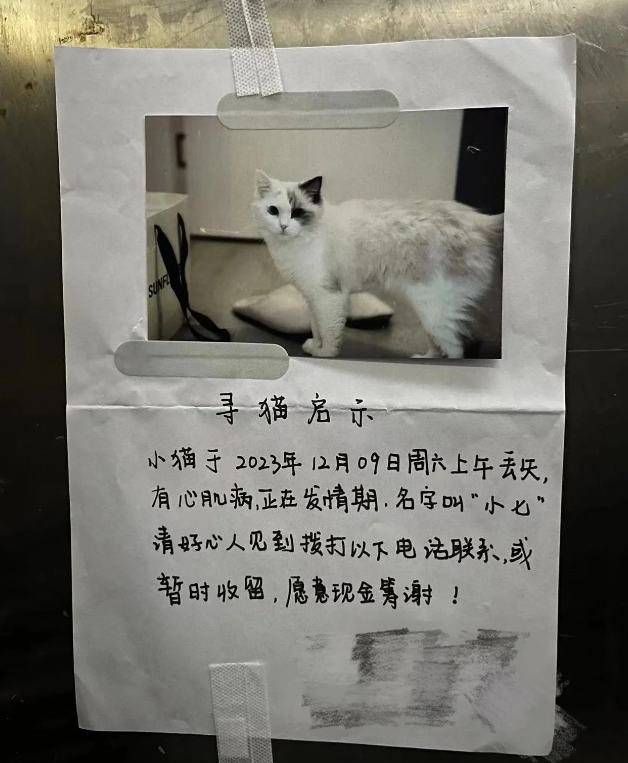 SUNFL
寻猫启示
小猫于 2023年 12月 09日周六上午丢失,
有心肌病,正在发情期.名字叫“小七”
请好心人见到拨打以下电话联系,或
暂时收留,愿意现金筹谢!